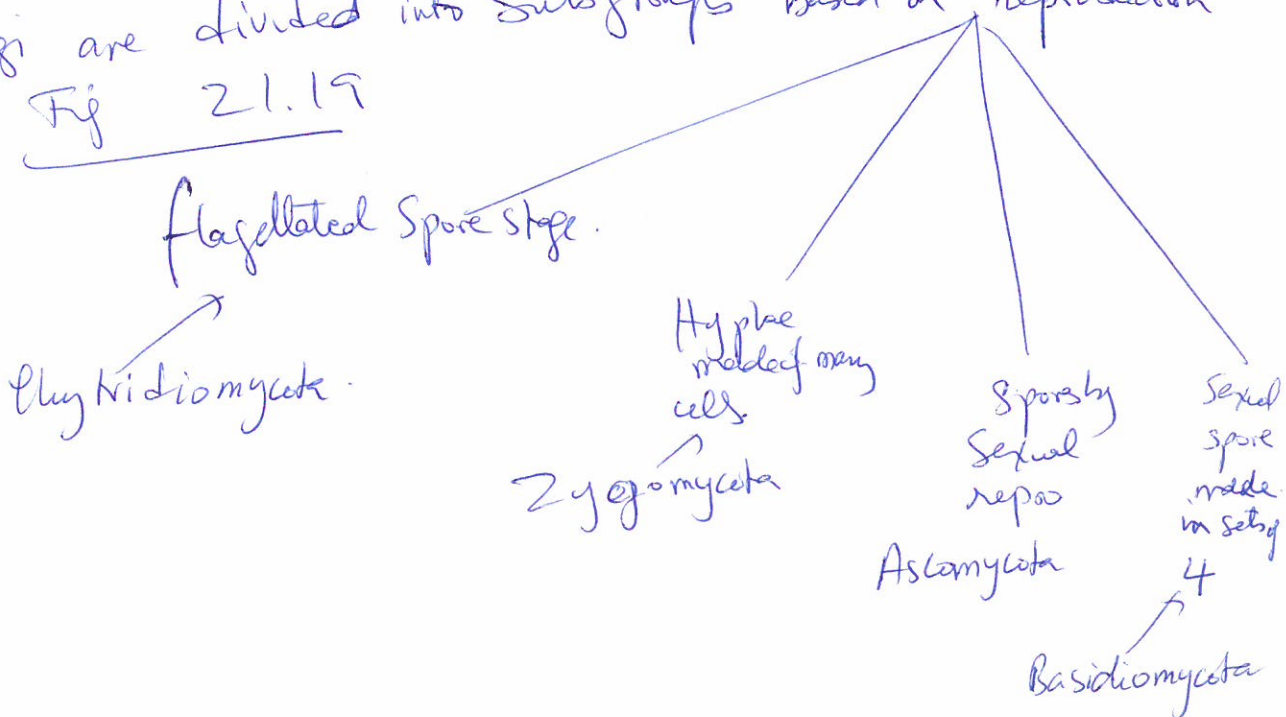 gi are divided into subgroups based on reproduction
Fig 21.19
flagellated Spore stage.
Chytridiomycota.
Hyphae
made of many
cells.
Zygomycota
Spores by
Sexual
repro
Ascomycota
Sexual
spore
made
in sets of
4
Basidiomycota